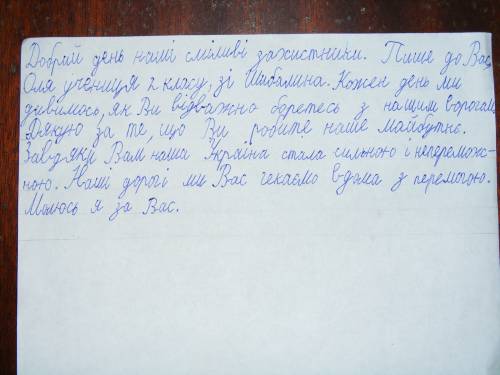 Добрий день наші сміливі захистники. Пише до Вас
Оля учениця 2 класу, зі Шибалина. Кожен день ми
дивимось, як Ви відважно боретесь з нашим ворогам
Дякую за те, що Ви робите наше майбутнє.
Завдяки Вам наша Україна стала сильною і неперемож-
ною. Наші дорогі ми Вас чекаємо вдома з перемогою.
Молюсь я за Вас.